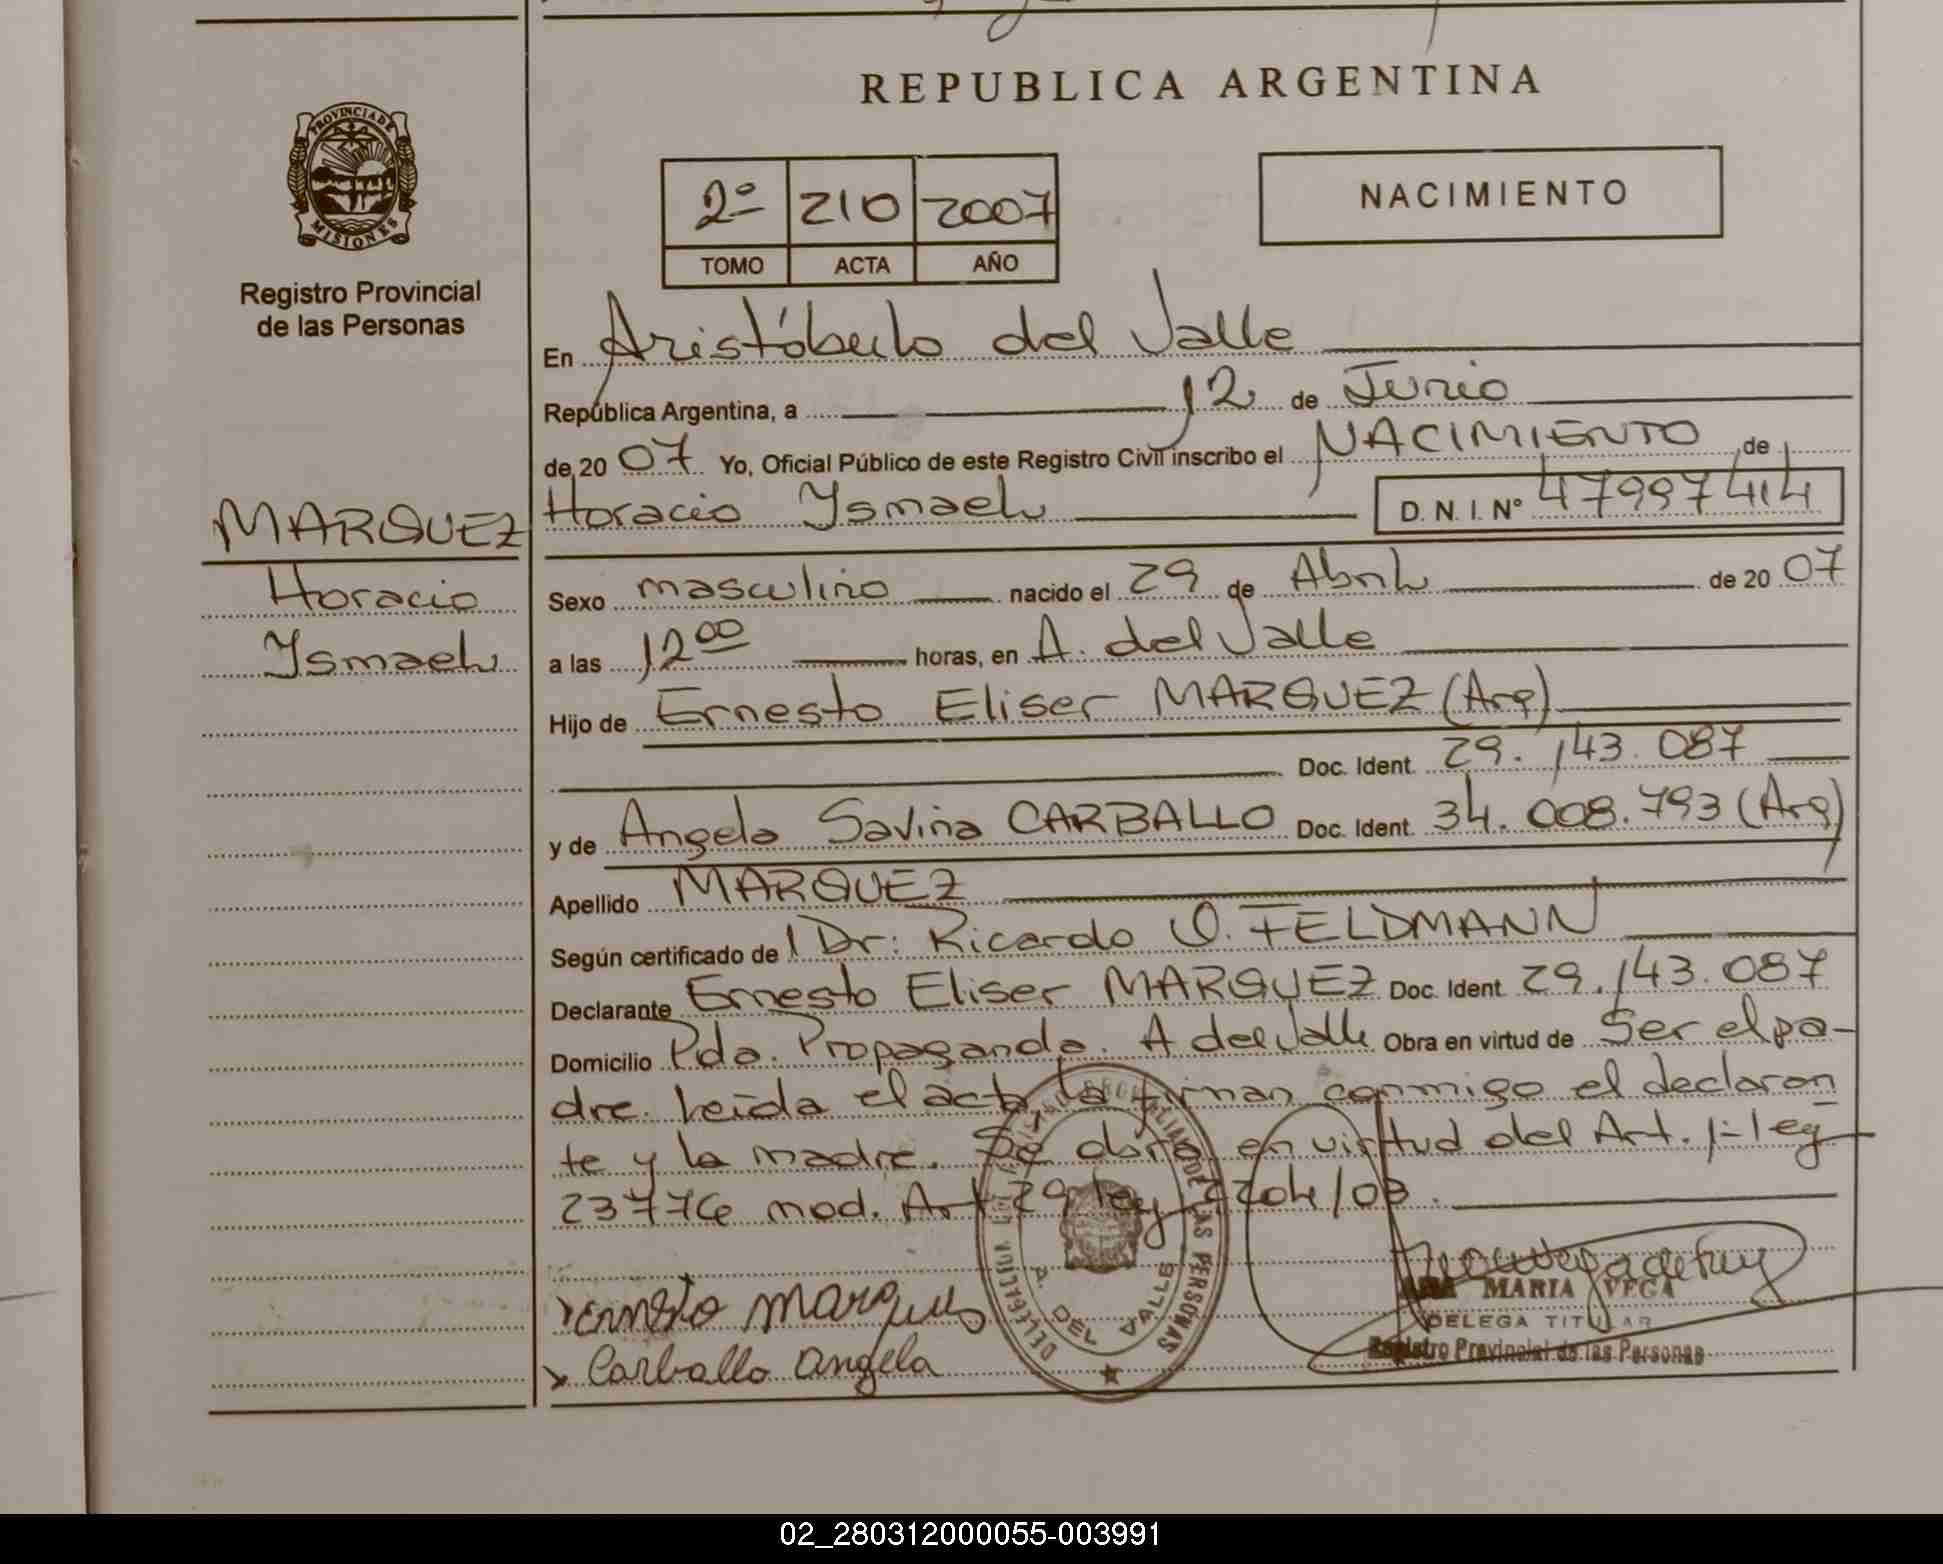 REPUBLICA ARGENTINA
PROVINCIA DE MISIONES
Registro Provincial
de las Personas
2º 210 2007
TOMO ACTA AÑO
NACIMIENTO
En Aristóbulo del Valle
República Argentina, a 12 de Junio
de 20 07 Yo, Oficial Público de este Registro Civil inscribo el NACIMIENTO de
MARQUEZ
Horacio
Ysmael
Horacio Ysmael D.N.I. Nº 47997414
Sexo masculino nacido el 29 de Abril de 20 07
a las 12 00 horas, en A. del Valle
Hijo de Ernesto Eliser MARQUEZ (Arg)
Doc. Ident. 29.143.087
y de Angela Savina CARBALLO Doc. Ident. 34.008.793 (Arg)
Apellido MARQUEZ
Según certificado de Dr: Ricardo O. FELDMANN
Declarante Ernesto Eliser MARQUEZ Doc. Ident. 29.143.087
Domicilio Pdo. Propaganda. A del Valle Obra en virtud de Ser el pa-
dre. Leida el acta, la firman conmigo el declaran
te y la madre. Se obra en virtud del Art. 1-ley
23776 mod. Art 29 ley 2204/03.
Ernesto Marques
Carballo Angela
DELEGACION
PROVINCIAL DE LAS PERSONAS
A. DEL VALLE
ANA MARIA VEGA
DELEGA TITULAR
Registro Provincial de las Personas
02_280312000055-003991